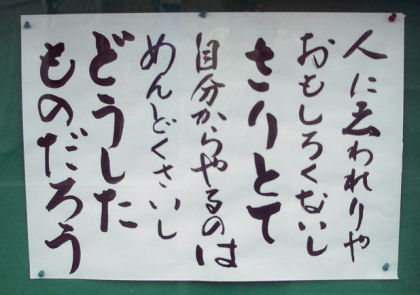 人に云われりゃ
おもしろくないし
さりとて
自分からやるのは
めんどくさいし
どうした
ものだろう